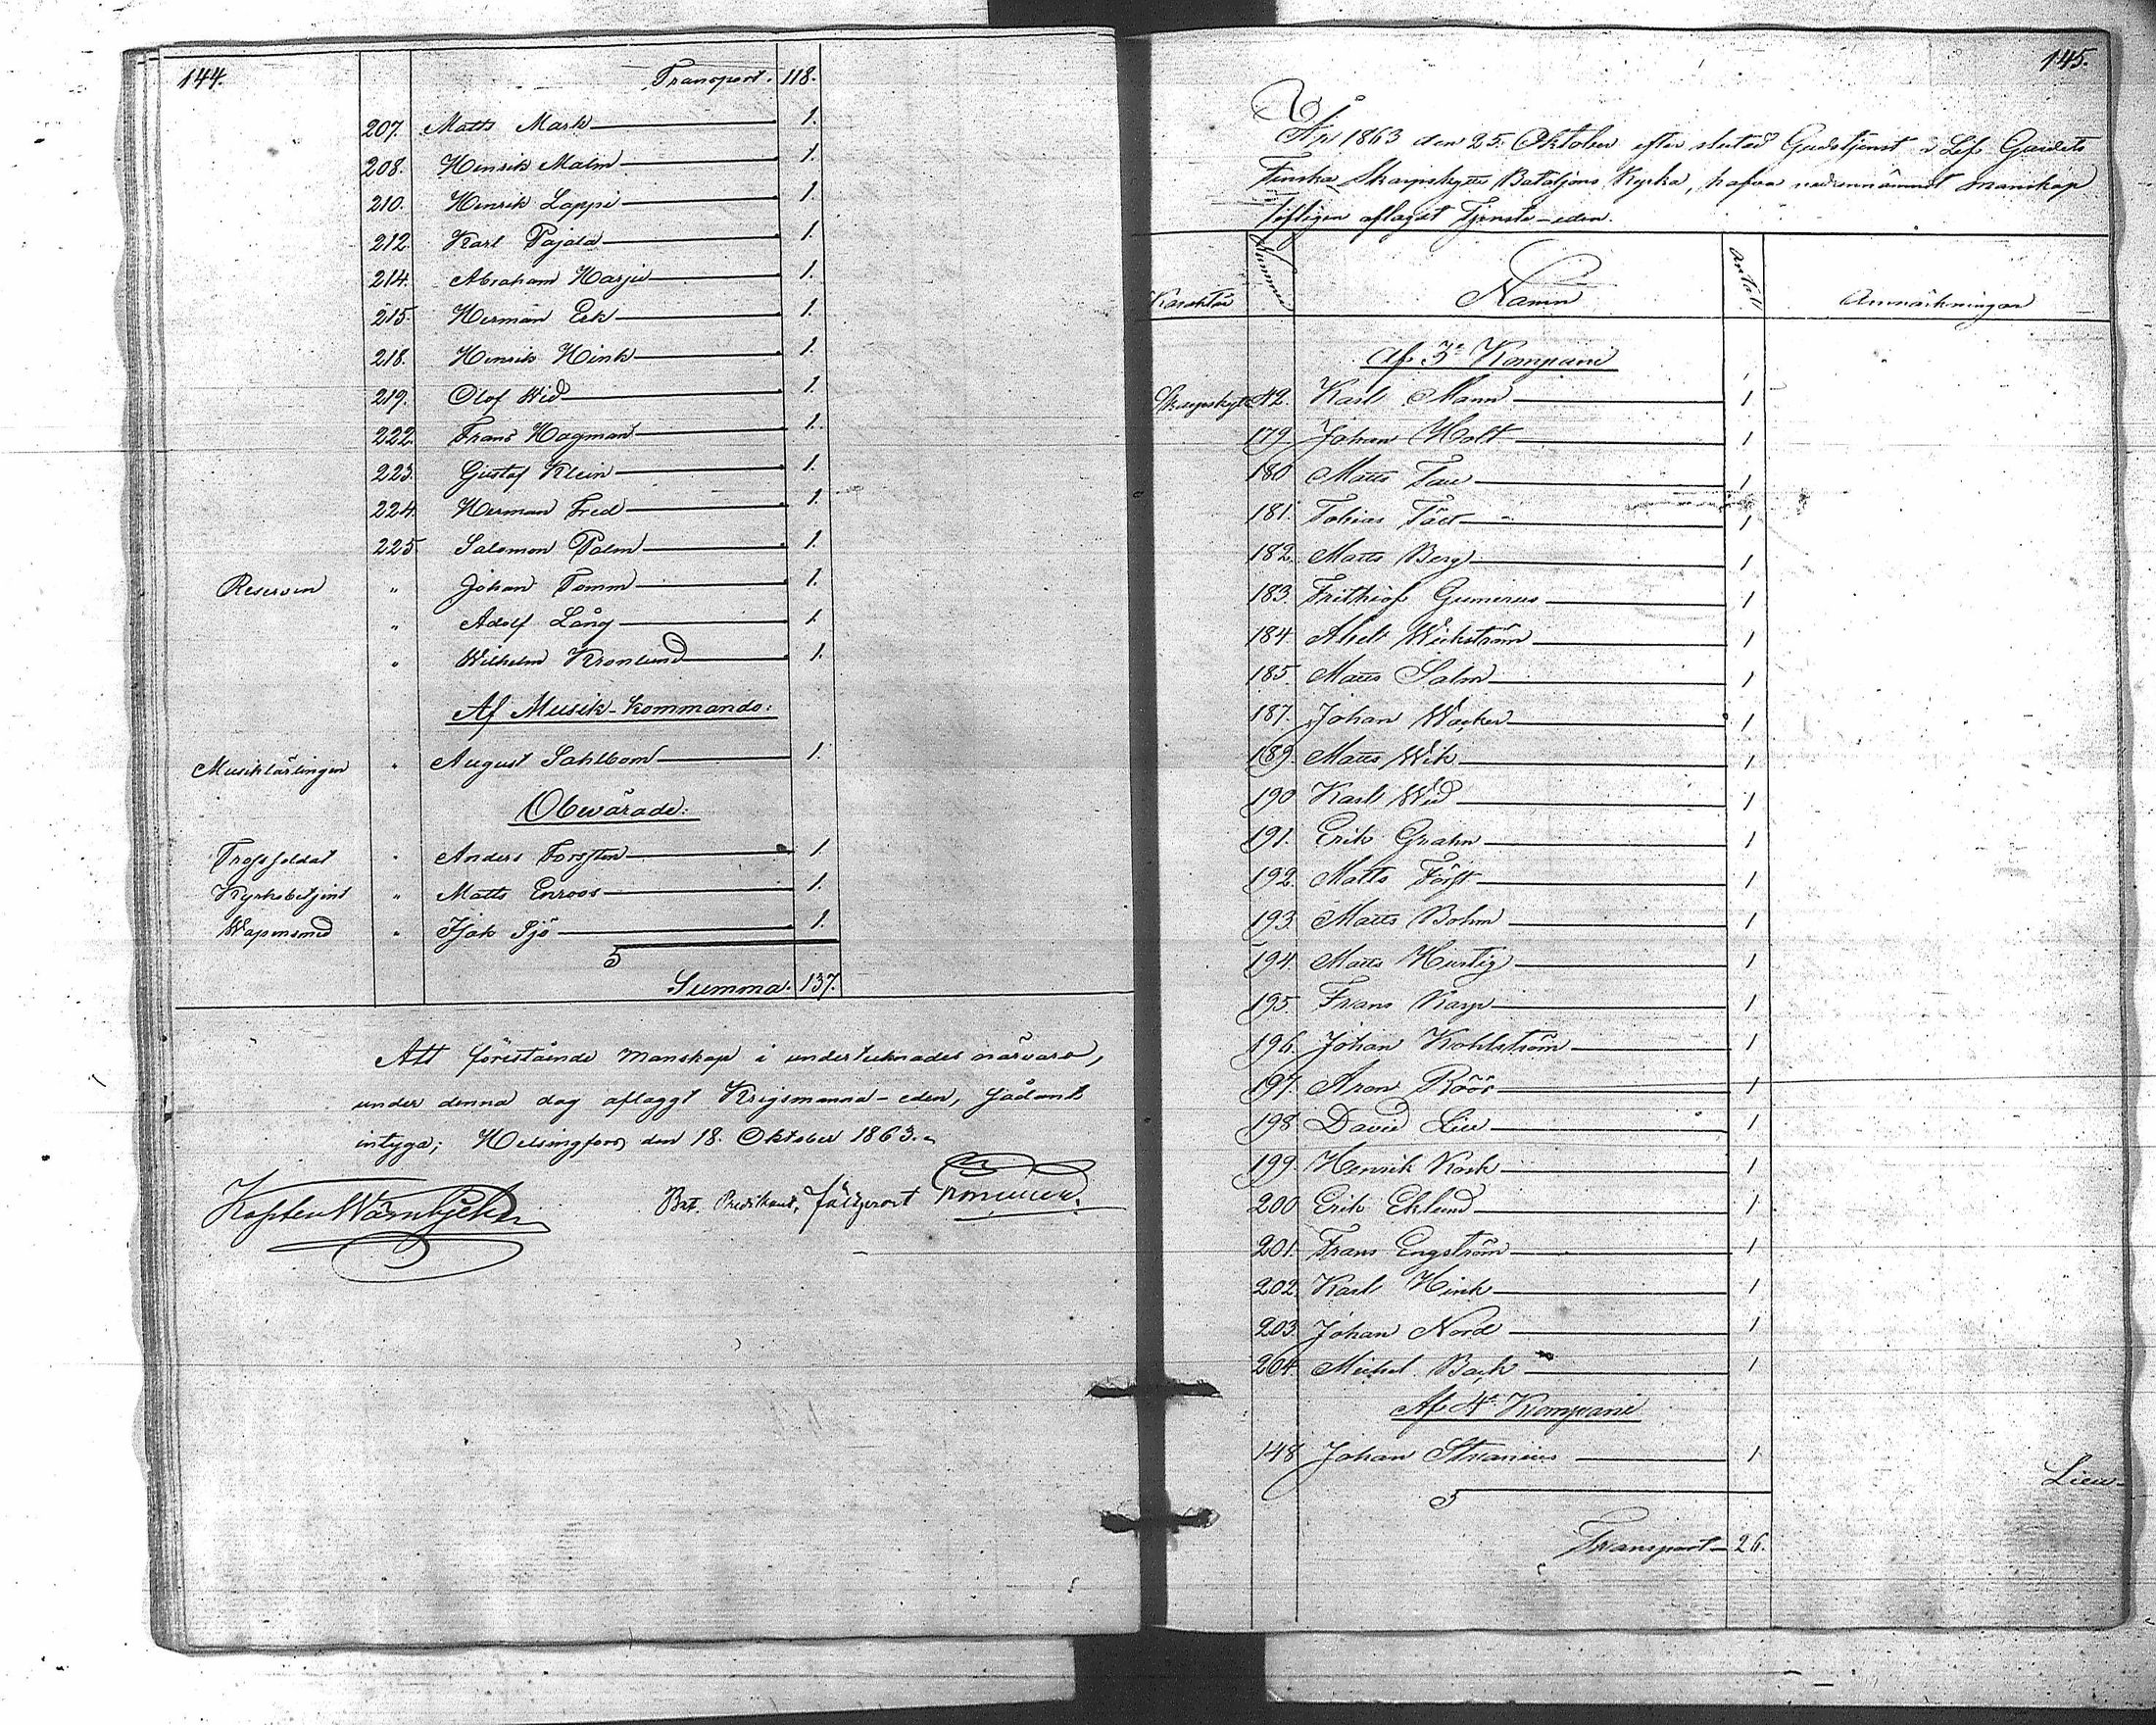 144.
Transport. 118.
207. Matts Mark 1.
208. Henrik Malm 1.
210. Henrik Lappi 1.
212. Karl Pajala 1.
214. Abraham Harju 1.
215. Herman Ek 1.
218. Henrik Hink 1.
219. Olof Wid 1.
222. Frans Hagman 1.
223. Gustaf Klein 1.
224. Herman Fred 1.
225 Salomon Palm 1.
Reserven " Johan Tamm 1.
" Adolf Lång 1.
" Wilhelm Kronlund 1.
Af Musik-Kommando:
Musiklärlingen " August Sahlbom 1.
Obevärade:
Trossoldat " Anders Forssten 1.
Kyrkobetjent " Matts Enroos 1.
Wapensmed " Isak Sjö 1.
Summa. 137.
Att förestående Manskap i undertecknades närvaro,
under denna dag aflaggt Krigsmanna-eden, sådant
intyga; Helsingfors den 18. Oktober 1863.
Kapten
Bat. Predikant, fältprost
145.
År 1863 den 25. Oktober efter slutad Gudstjenst i Lif Gardets
Finska Skarpskytte Bataljons Kyrka, hafva nedannämndt manskap
aflagdt Tjenste-eden.
Karakter
Nummer
Namn
Antal
Anmärkningar
Af 3e Kompani
Skarpskytt 42. Karl Mann 1
179. Johan Holt 1
180 Matts 1
181. Tobias 1
182. Matts Berg 1
183. Frithiof Gumerus 1
184. Abel Wickström 1
185. Matts Salm 1
187. Johan Wacker 1
189. Matts Wik 1
190 Karl Wid 1
191. Erik Grahn 1
192. Matts Först 1
193. Matts Bohm 1
194. Matts Hurtig 1
195. Frans Karp 1
196. Johan Kohlström 1
197. Aron Röös 1
198 David 1
199. Henrik Kask 1
200 Erik Eklund 1
201. Frans Engström 1
202. Karl Hink 1
203. Johan Nord 1
204. Michel Back 1
Af 4e Kompani
148 Johan Stranius 1
Lieu-
Transport 26.